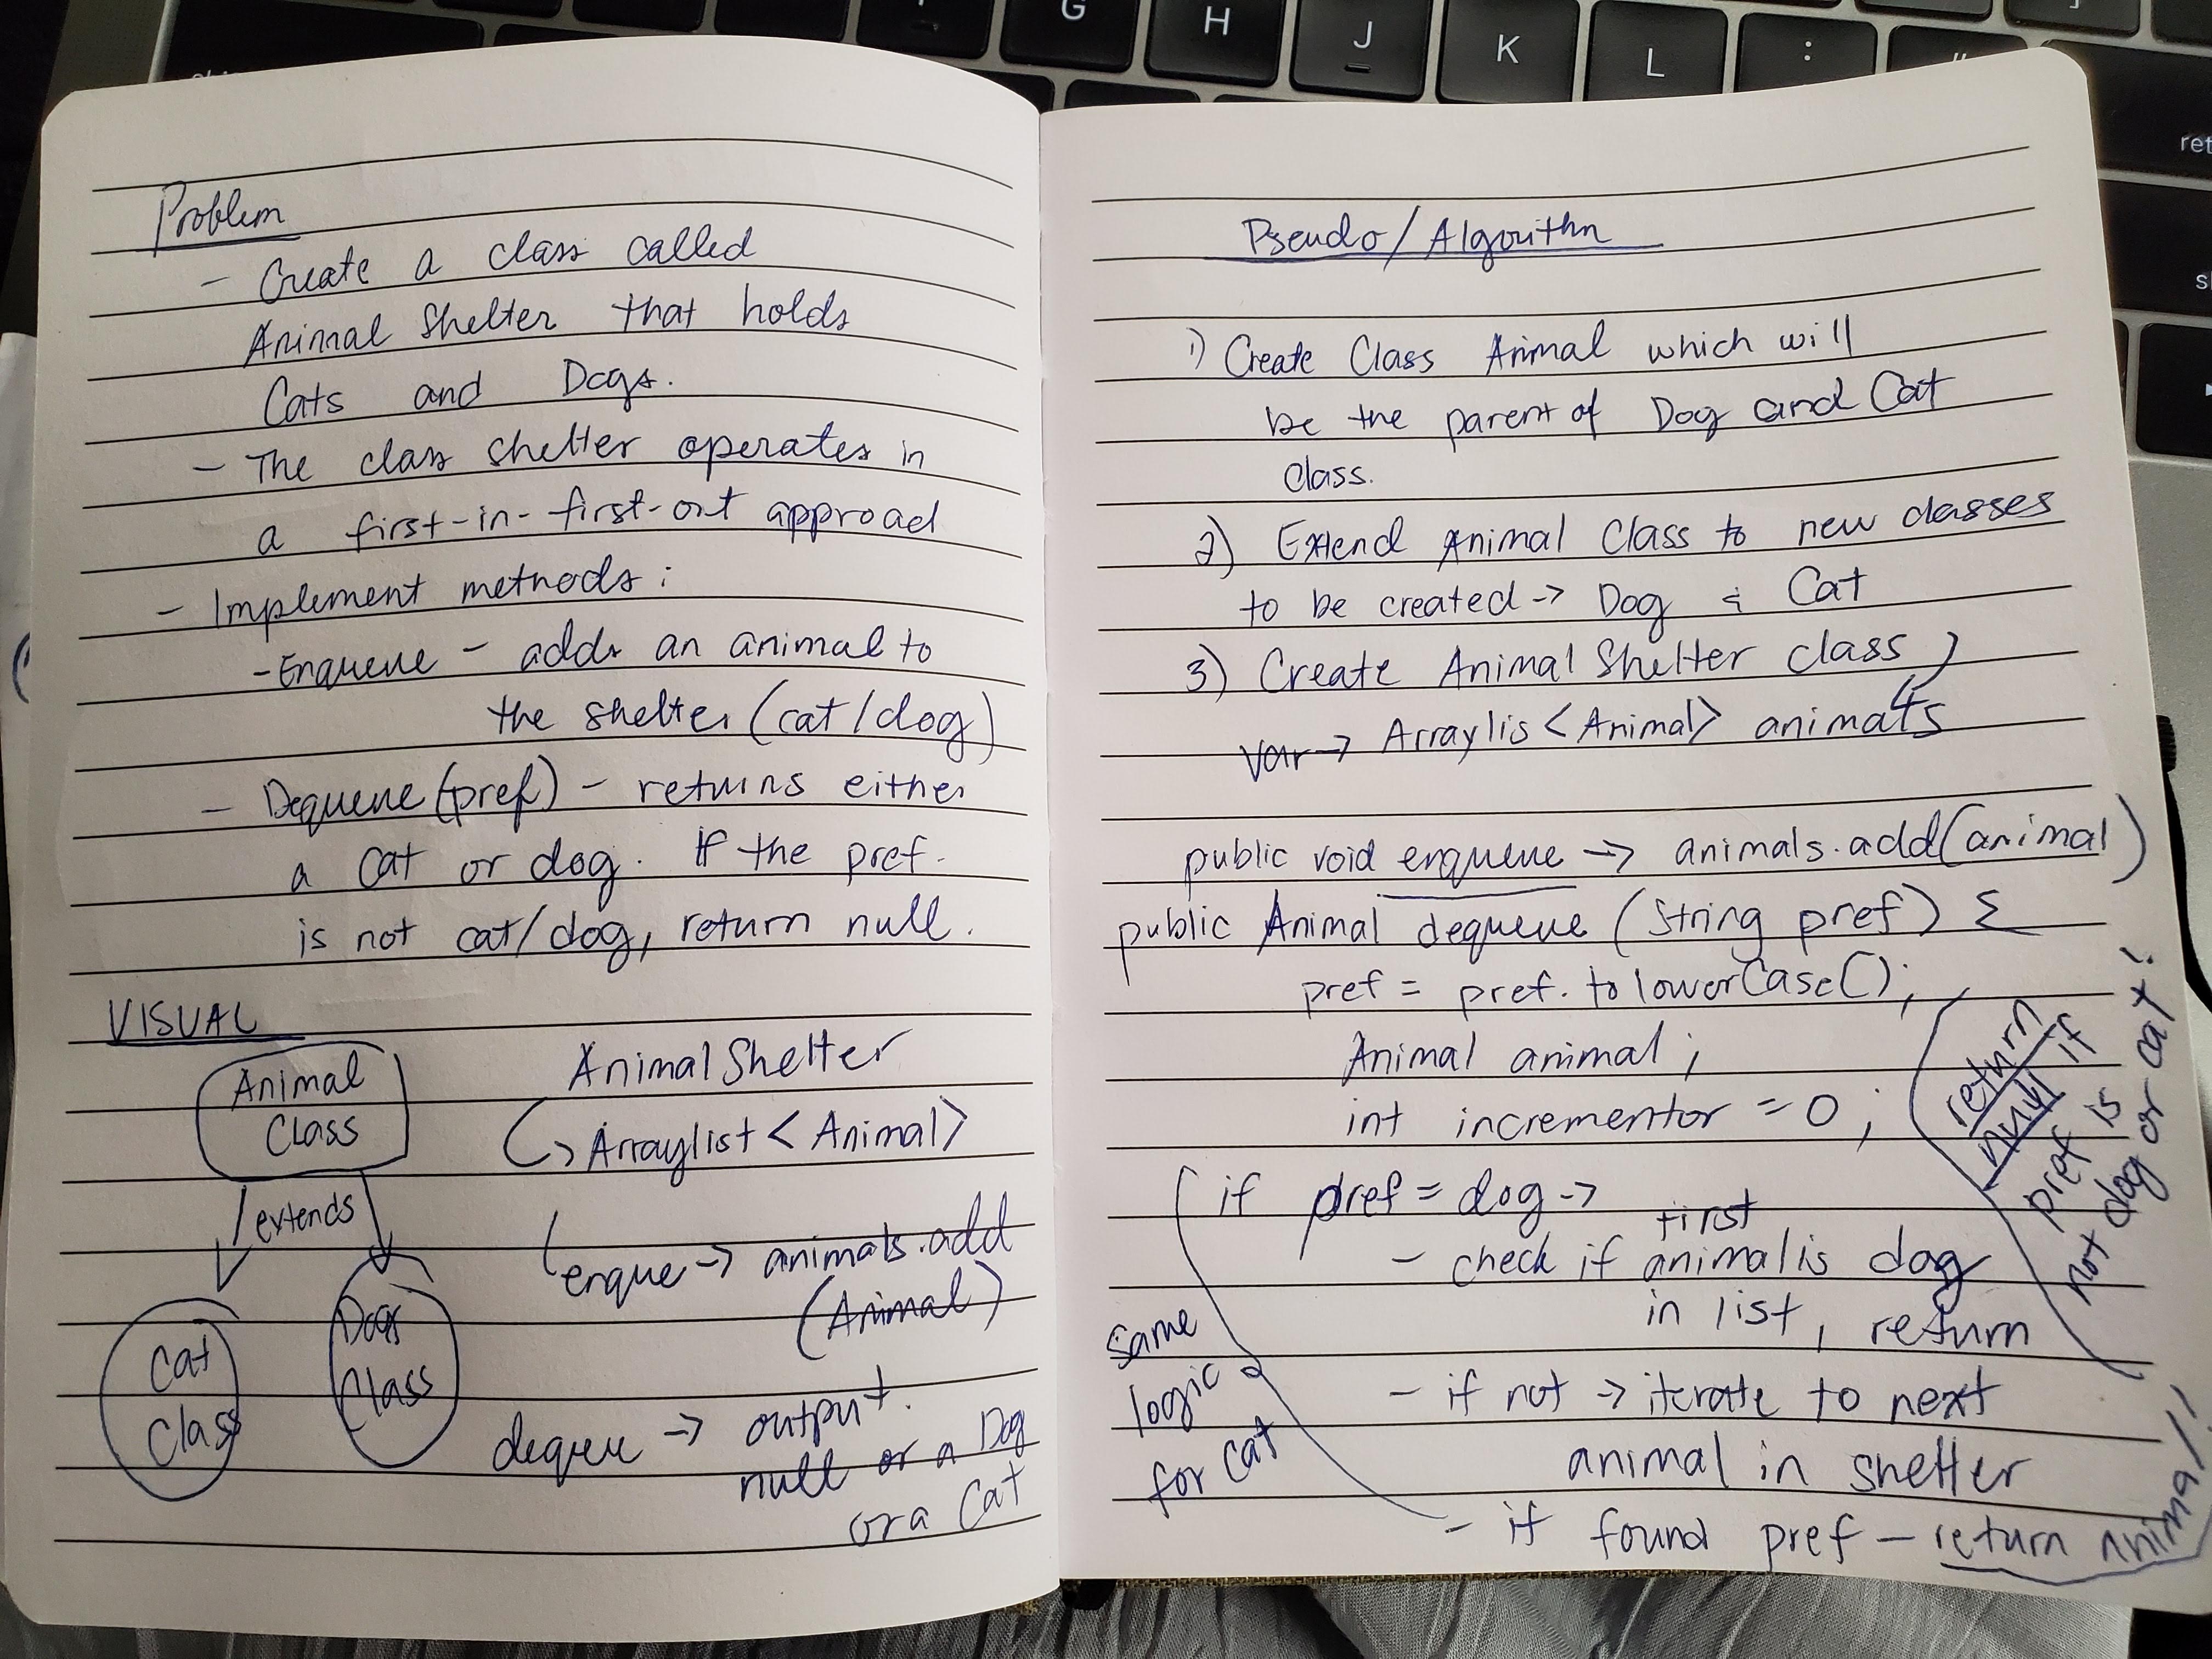 Problem
- Create a class called
Animal Shelter that holds
Cats and Dogs.
- The class shelter operates in
a first-in-first-out approad
- Implement methods:
- Enqueue - adds an animal to
the shelter (cat/dog)
- Dequeue (pref) - returns either
a cat or dog. If the pref.
is not cat/dog, return null.
VISUAL
Animal
Class
extends
Cat
Class
Dogs
Class
AnimalShelter
↳ Arraylist < Animal >
enque → animals.add
(Animal)
deque → output.
null or a Dog
or a Cat
Pseudo / Algorithm
1) Create Class Animal which will
be the parent of Dog and Cat
Class.
2) Extend Animal Class to new classes
to be created → Dog & Cat
3) Create Animal Shelter class
Var → Arraylis < Animal > animals
public void enqueue → animals.add(animal)
public Animal dequeue (String pref) {
pref = pref.toLowerCase();
Animal animal;
int incrementor = 0;
return
null if
pref is
not dog or cat!
if pref = dog →
- check if first animal is dog
in list, return
- if not → iterate to next
animal in shelter
- if found pref - return anim
same
logic
for Cat
G
H
J
K
L
:
ret